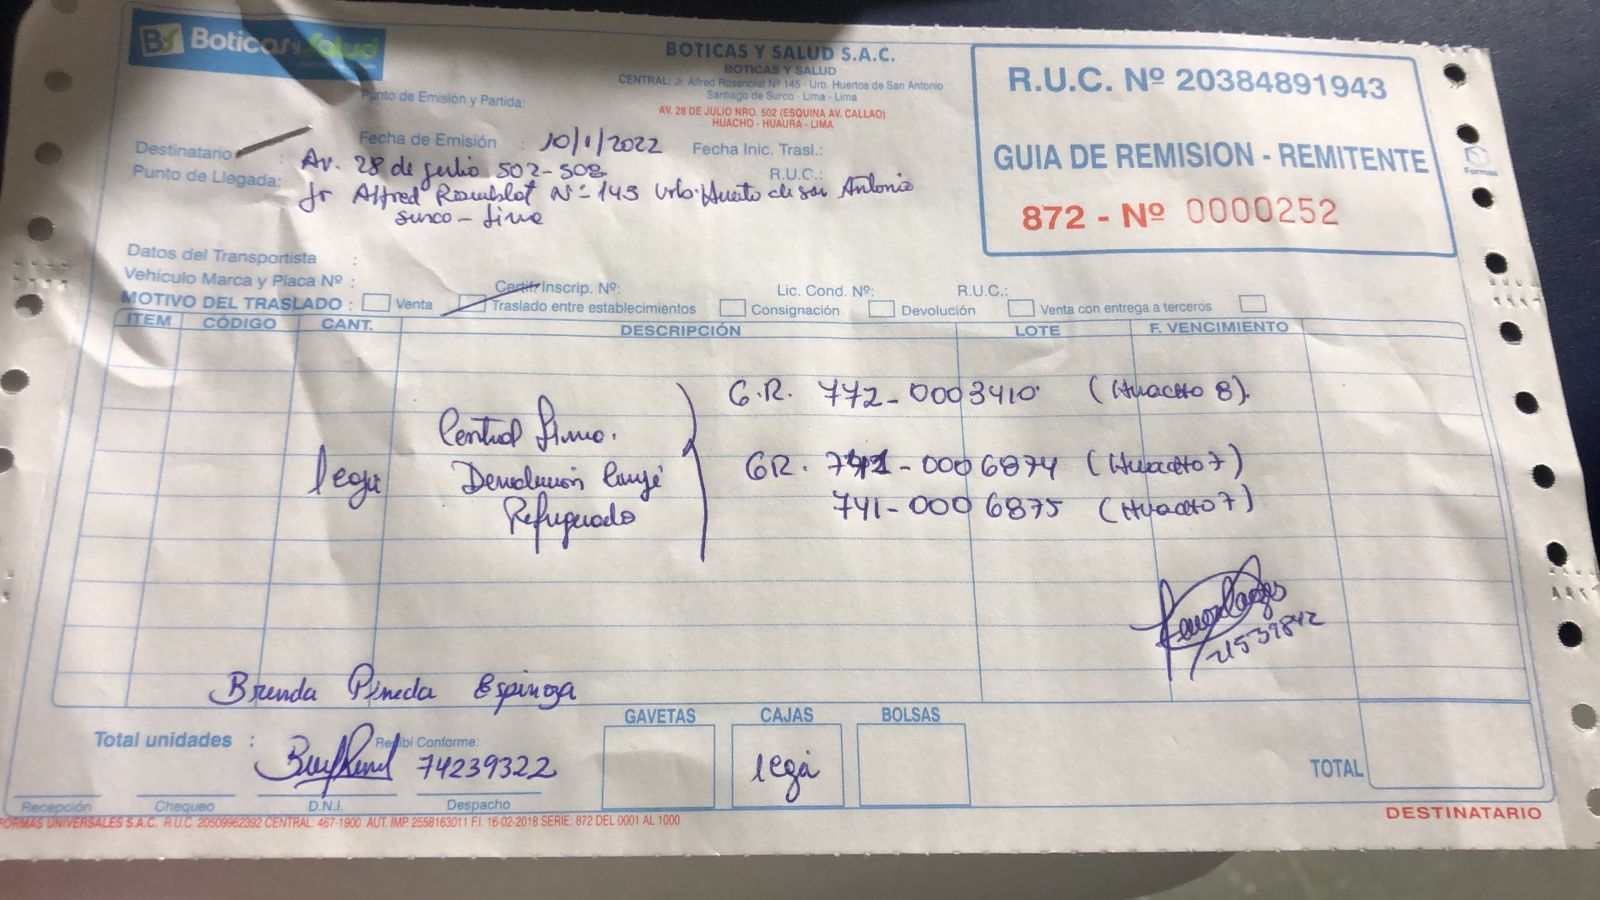 BS Boticas y Salud
BOTICAS Y SALUD S.A.C.
BOTICAS Y SALUD
CENTRAL: Jr. Alfred Rosenblat Nº 145 - Urb. Huertos de San Antonio
Santiago de Surco - Lima - Lima
AV. 28 DE JULIO NRO. 502 (ESQUINA AV. CALLAO)
HUACHO - HUAURA - LIMA
R.U.C. Nº 20384891943
GUIA DE REMISION - REMITENTE
872 - Nº 0000252
Punto de Emisión y Partida:
Fecha de Emisión : 10/1/2022 Fecha Inic. Trasl.:
Destinatario : Av. 28 de julio 502-508 R.U.C.:
Punto de Llegada: Jr Alfred Nº 145 Urb. Huerto de san Antonio
Surco - Lima
Datos del Transportista :
Vehículo Marca y Placa Nº : Certif. Inscrip. Nº: Lic. Cond. Nº: R.U.C.:
MOTIVO DEL TRASLADO : Venta Traslado entre establecimientos Consignación Devolución Venta con entrega a terceros
ITEM CÓDIGO CANT. DESCRIPCIÓN LOTE F. VENCIMIENTO
G.R. 772-0003410 (Huacho 8).
Central Lima.
GR. 741-0006874 (Huacho 7)
1 caja Devolución Canje
741-0006875 (Huacho 7)
Refrigerado
21539842
Brenda Pineda Espinoza
GAVETAS CAJAS BOLSAS
Total unidades : Recibí Conforme:
74239322 1 caja TOTAL
Recepción Chequeo D.N.I. Despacho
FORMAS UNIVERSALES S.A.C. R.U.C. 20509962392 CENTRAL: 467-1900 AUT. IMP. 2558163011 F.I. 16-02-2018 SERIE: 872 DEL 0001 AL 1000
DESTINATARIO